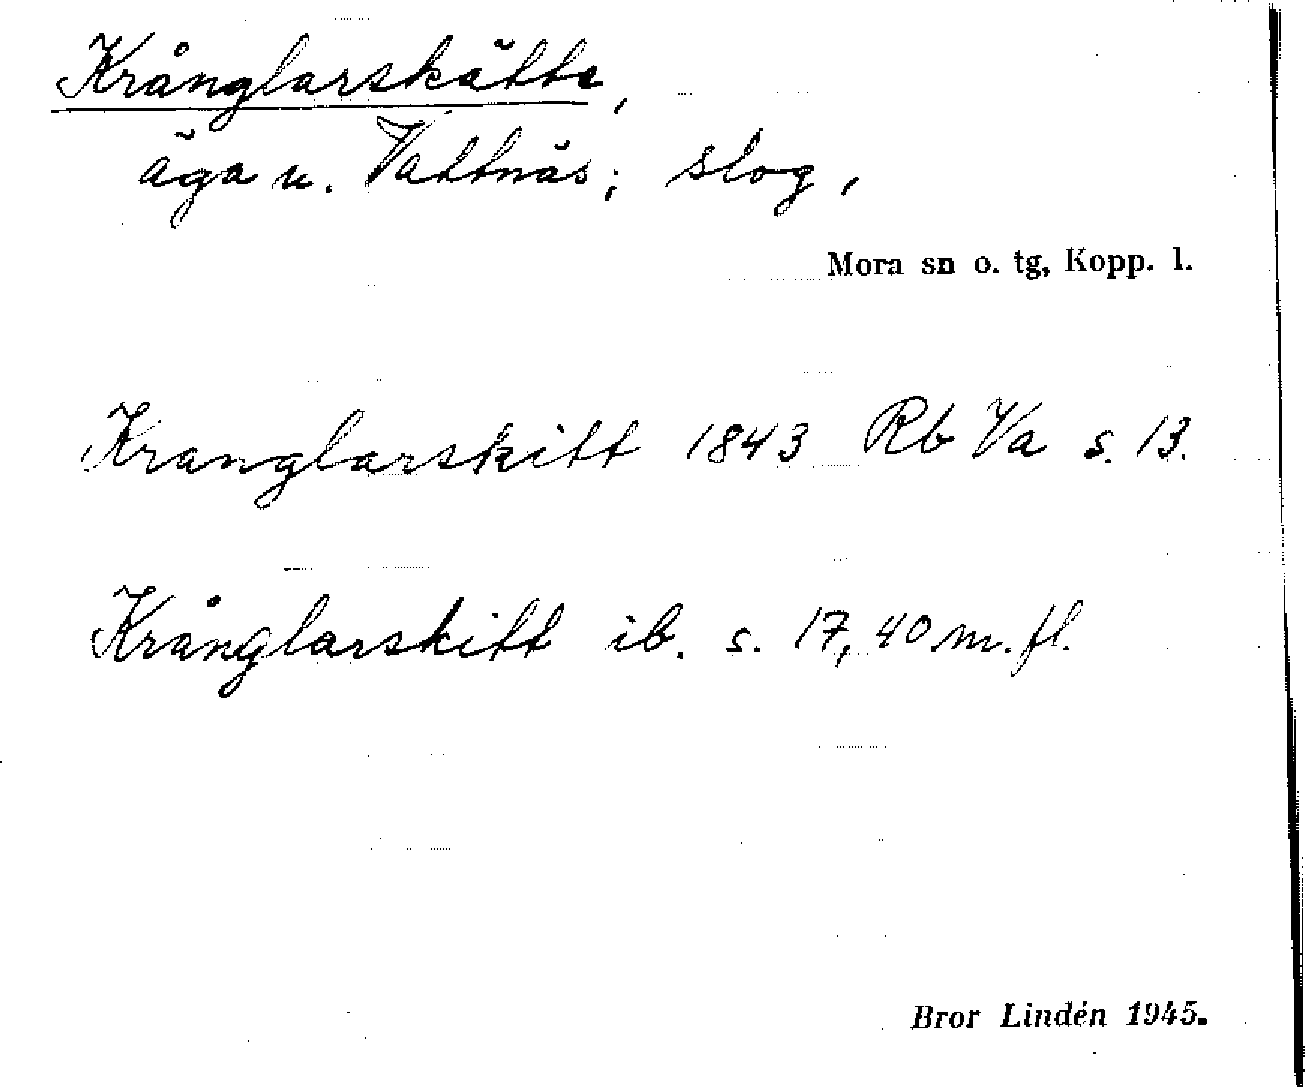 Krånglarskätte,
äga u. Vattnäs; slog,
Mora sn o. tg, Kopp. l.
Kranglarskitt 1843 Rb Va s. 13.
Krånglarskitt ib. s. 17, 40 m. fl.
Bror Lindén 1945.